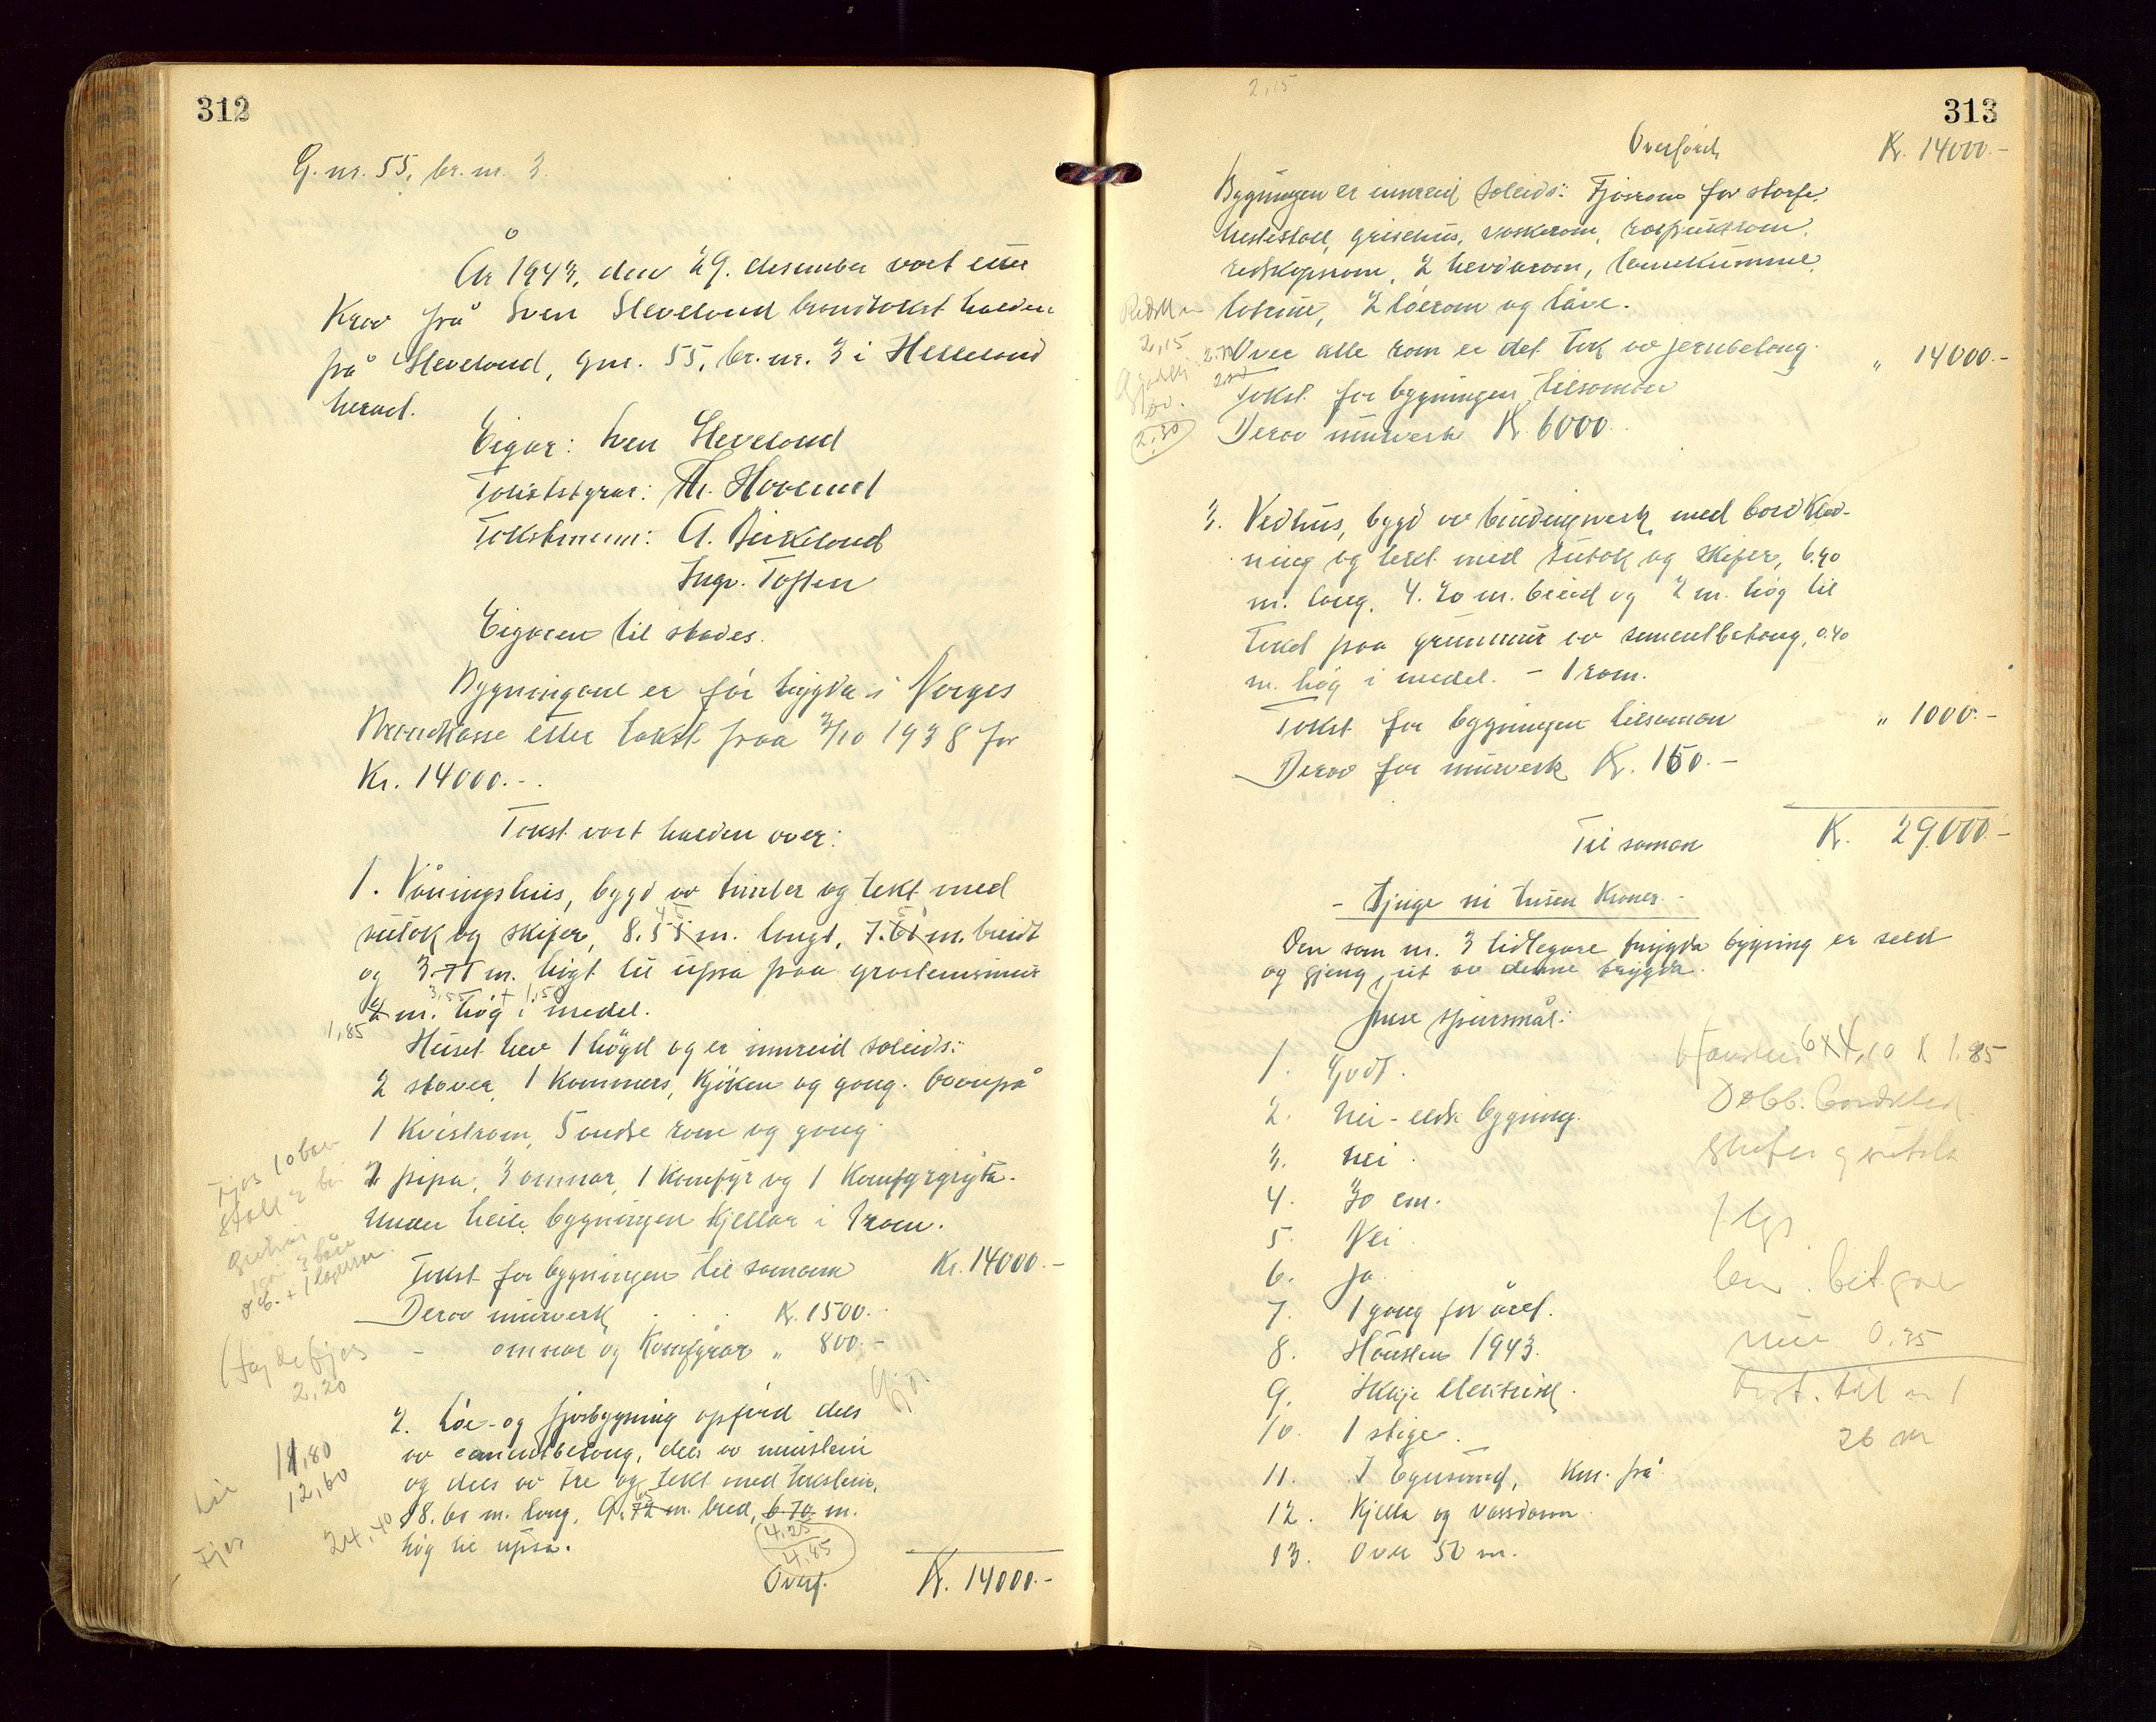 312
G. nr. 55, br. nr. 3.
År 1943, den 29. desember vart etter
Krav frå Sven Sleveland brandtakst halden
på Sleveland, gnr. 55, br. nr. 3 i Helleland
herad.
Eigar: Sven Sleveland
Takststyrar: Th. Hovland
Takstmenn: A. Birkeland
Ingv. Toften
Eigaren til stades.
Bygningane er før trygda i Norges
Brandkasse etter takst fraa 3/10 1938 for
Kr. 14000.-.
Takst vart halden over:
1. Våningshus, bygd av timber og tekt med
sutak og skifer, 8.55 m. langt, 7.61 m. breidt
og 3.71 m. høgt til upsa paa graasteinsmur
3,55 + 1,50
2 m. høg i medel.
1,85
Huset hev 1 høgd og er innreid soleids:
2 stover, 1 Kammers, Kjøken og gang. Ovanpå
1 Kvistrom, 5 andre rom og gang.
2 pipa, 3 omnar, 1 Komfyr og 1 Komfyrgryta.
Under heile bygningen Kjellar i 1 rom.
Takst for bygningen til saman Kr. 14000.-
Derav murverk Kr. 1500.-
- omnar og Komfyrar " 800.-
Fjøs 10 bås
Stall 2
2,20
2. Løe- og fjøsbygning opførd dels
av cementbetong, dels av murstein
og dels av tre og tekt med takstein,
18.60 m. lang, 9.72 m. bred, 6.70 m.
høg til upsa.
11,80
12,60
Fjøs 24,40
4,25
4,85
Overf. Kr. 14000.-
313
2,15
Overførd Kr. 14000.-
Bygningen er innreid soleids: Fjøsrom for storfe,
hestestall, grisehus, vaskerom, rotfruktrom,
redskapsrom, 2 hevdarom, landkumme,
latrine, 2 løerom og låve.
Over alle rom er det tak av jernbetong.
Takst for bygningen tilsaman " 14000.-
Derav murverk Kr. 6000.-
2,15
2,30
3. Vedhus, bygd av bindingverk med bordklæd-
ning og tekt med sutak og skifer, 6.40
m. lang, 4.20 m. breid og 2 m. høg til
taket paa grunnmur av sementbetong, 0.40
m. høg i medel. - 1 rom.
Takst for bygningen tilsaman " 1000.-
Derav for murverk Kr. 150.-
Til saman Kr. 29000.-
- Tjuge ni tusen Kroner -
Den som nr. 3 tidlegare trygda bygning er seld
og gjeng ut av denne trygda.
Ymse spursmål:
1. Godt.
2. Nei - eldre bygning.
3. Nei.
4. 30 cm.
5. Nei.
6. Ja
7. 1 gang for året.
8. Hausten 1943.
9. Ikkje elektrisk.
10. 1 stige.
11. I Egersund, Km. frå
12. Kjella og vassdam.
13. Over 50 m.
6 x 4,10 x 1.85
Dobb. bordkled
Skifer g sutak
mur 0,35
Avst. til nr 1
26 m